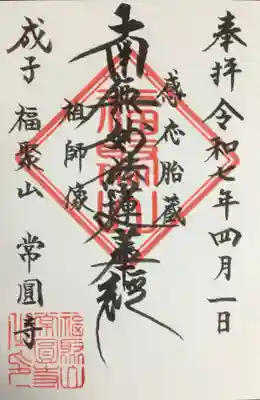 奉拝 令和七年四月一日
感応胎蔵
南無妙法蓮華経
祖師像
成子 福聚山 常圓寺
福聚山
常圓寺